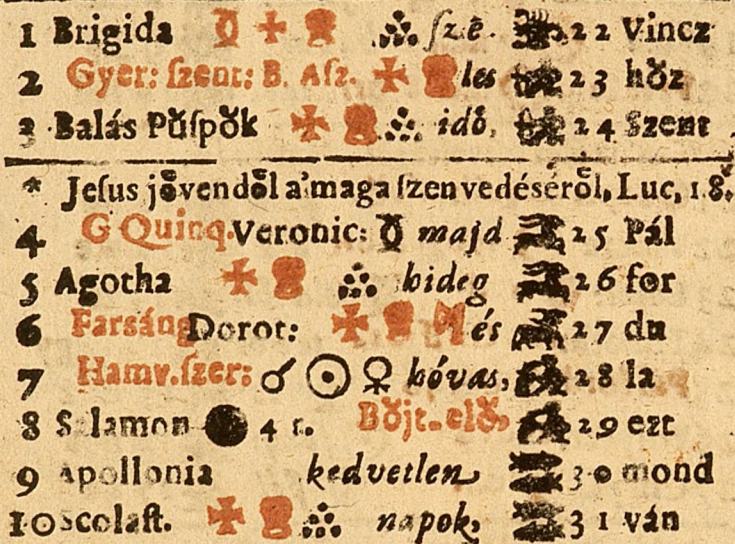 1 Brigida ſzé. 22 Vincz
2 Gyer: ſzent: B. Aſz. les 23 hŏz
3 Balás Pŭſpŏk idŏ, 24 Szent
* Jeſus jŏvendŏl a' maga ſzenvedéséről, Luc. 18.
4 G Quinq. Veronic: majd 25 Pál
5 Agotha hideg 26 for
6 Farsáng Dorot: és 27 du
7 Hamv. ſzer: ☌ ☉ ♀ hóvas, 28 la
8 Salamon 4 r. Bŏjt. elŏ, 29 ezt
9 Apollonia kedvetlen 30 mond
10 Scolaſt. napok, 31 ván